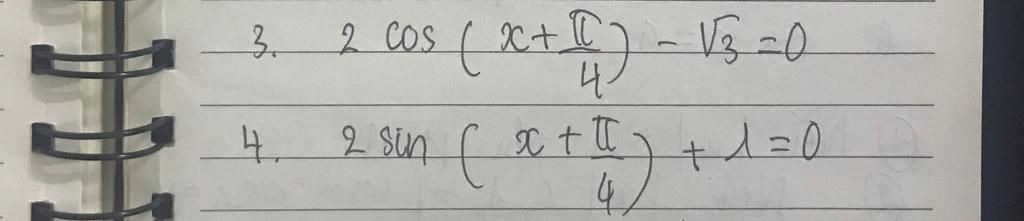 3. 2 cos ( x + π/4 ) - √3 = 0
4. 2 sin ( x + π/4 ) + 1 = 0